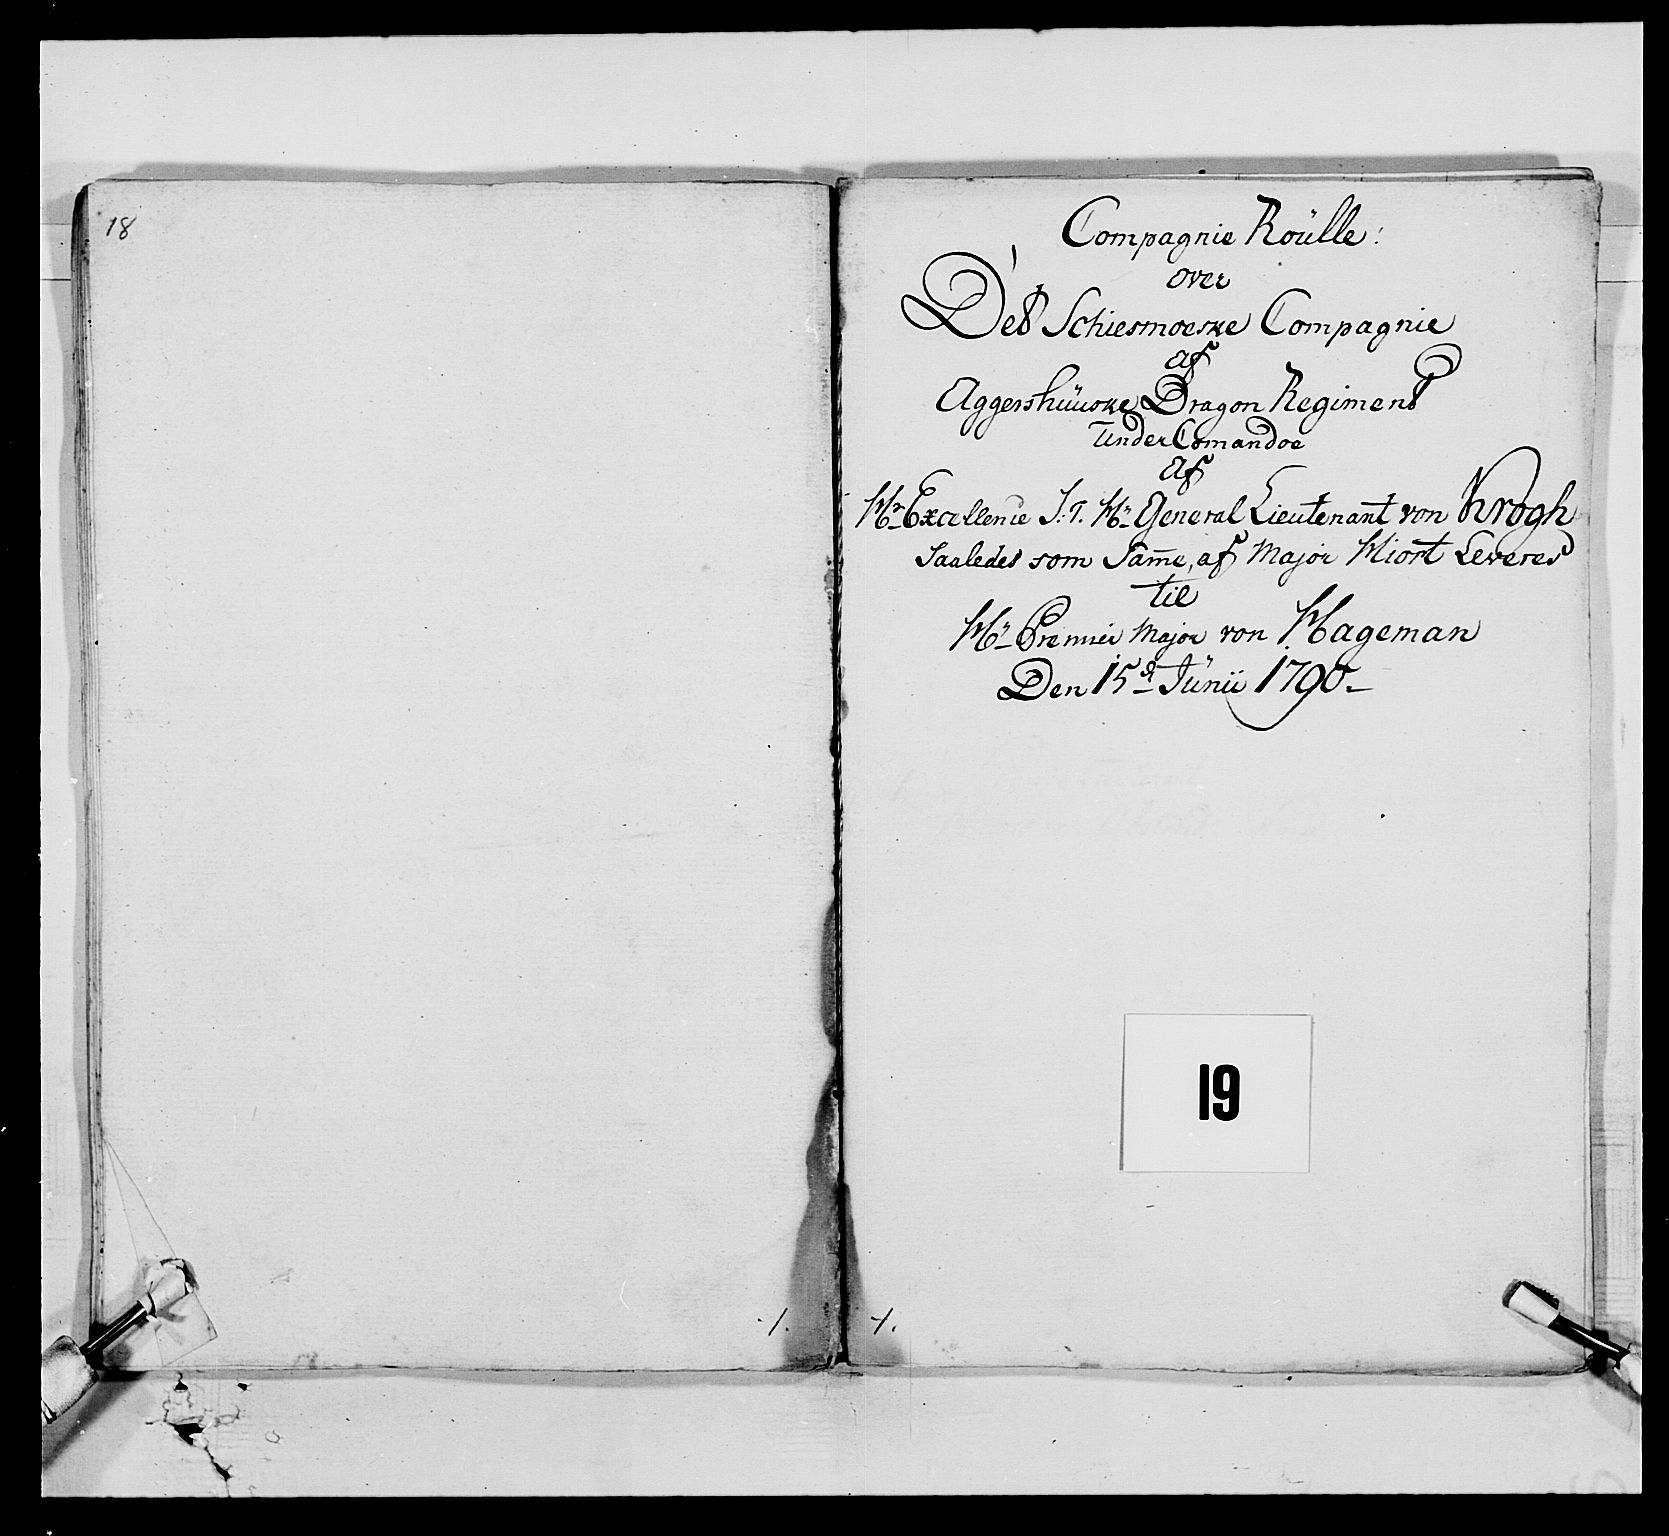 18
Compagnie Roülle:
over
Det Schiesmoeske Compagnie
af
Aggershüuske Dragon Regiment
Under Comandoe
af
Hr Excellence S: T. Hr General Lieutenant von Krogh
Saaledes som Samme, af Major Hiort Leveres
til
Hr Premier Major von Hageman
Den 15d Junii 1790
19